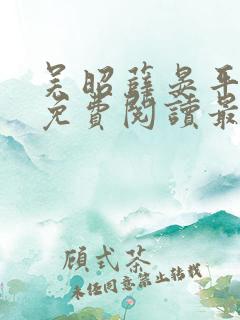 吴昭薛晏平
免費閱讀最
顧式茶
未经同意禁止转载